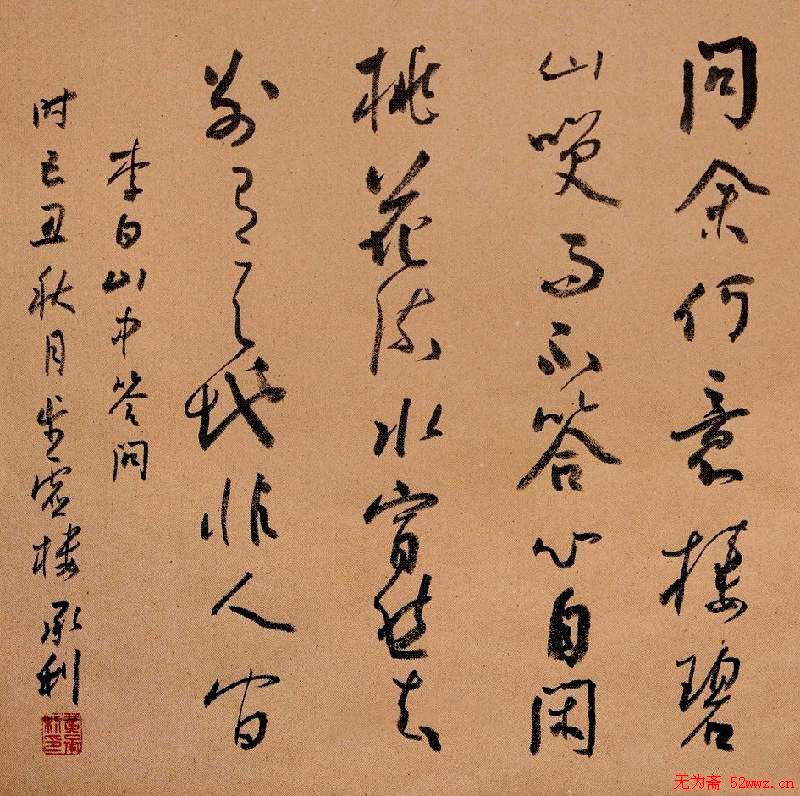 问余何意棲碧
山咲而不答心自闲
桃花流水窅然去
别有天地非人间
李白山中答问
时己丑秋月楼承利
无为斋 52wwz.cn